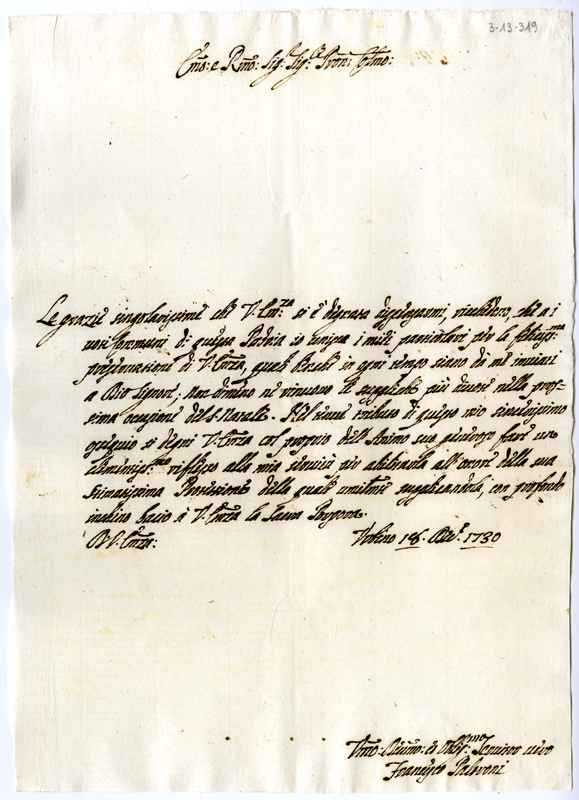 3-13-319
Emo: e Rmo: Sig: Sig: Pron: Colmo:
Le grazie singolarissime che V. Em:za si è degnata dispensarmi, richiedono, che a i
voti communi di questa Patria io unisca i miei particolari per la feliciss:ma
preservazione di V. Emza, quali benche in ogni tempo siano da me inviati
a Dio Signore, non dimeno ne rinuovo le suppliche più divote nella pros-
sima occasione del S. Natale. Nel tributo di questo mio sincerissimo
ossequio si degni V. Emza col proprio dell'Animo suo generoso fare un
benignis:mo riflesso alla mia servitù per abilitarla all'onore della sua
stimatissima Protezione della quale umilmte supplicandola, con profondo
inclino bacio à V. Emza la Sacra Porpora.
D V. Emza: Urbino 18. Xbre 1730
Umo: Divmo: ed Obbmo Servitore vero
Francesco